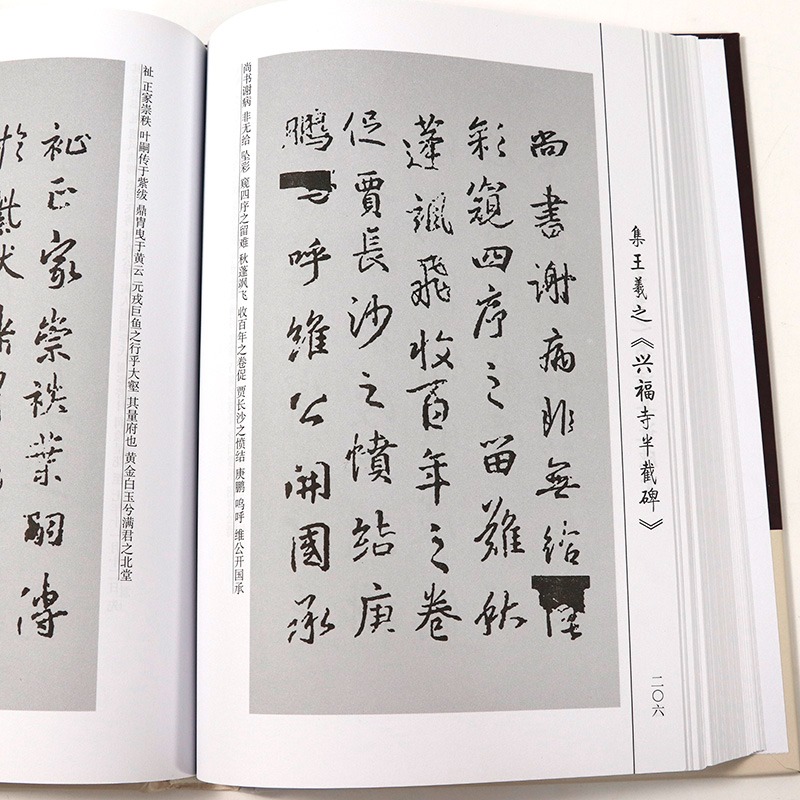 集王羲之《兴福寺半截碑》
二〇六
尚書謝病非無給
彩窺四序之留難秋
蓬飄飛收百年之卷
促賈長沙之憤結庚
鵬呼維公開國承
尚书谢病 非无给 坠彩 窥四序之留难 秋蓬飒飞 收百年之卷促 贾长沙之愤结 庚鹏 呜呼 维公开国承
祉 正家崇秩 叶嗣传于紫绂 鼎胄曳于黄云 元戎巨鱼之行乎大壑 其量府也 黄金白玉兮满君之北堂
祉正家崇袟葉嗣傳
於紫